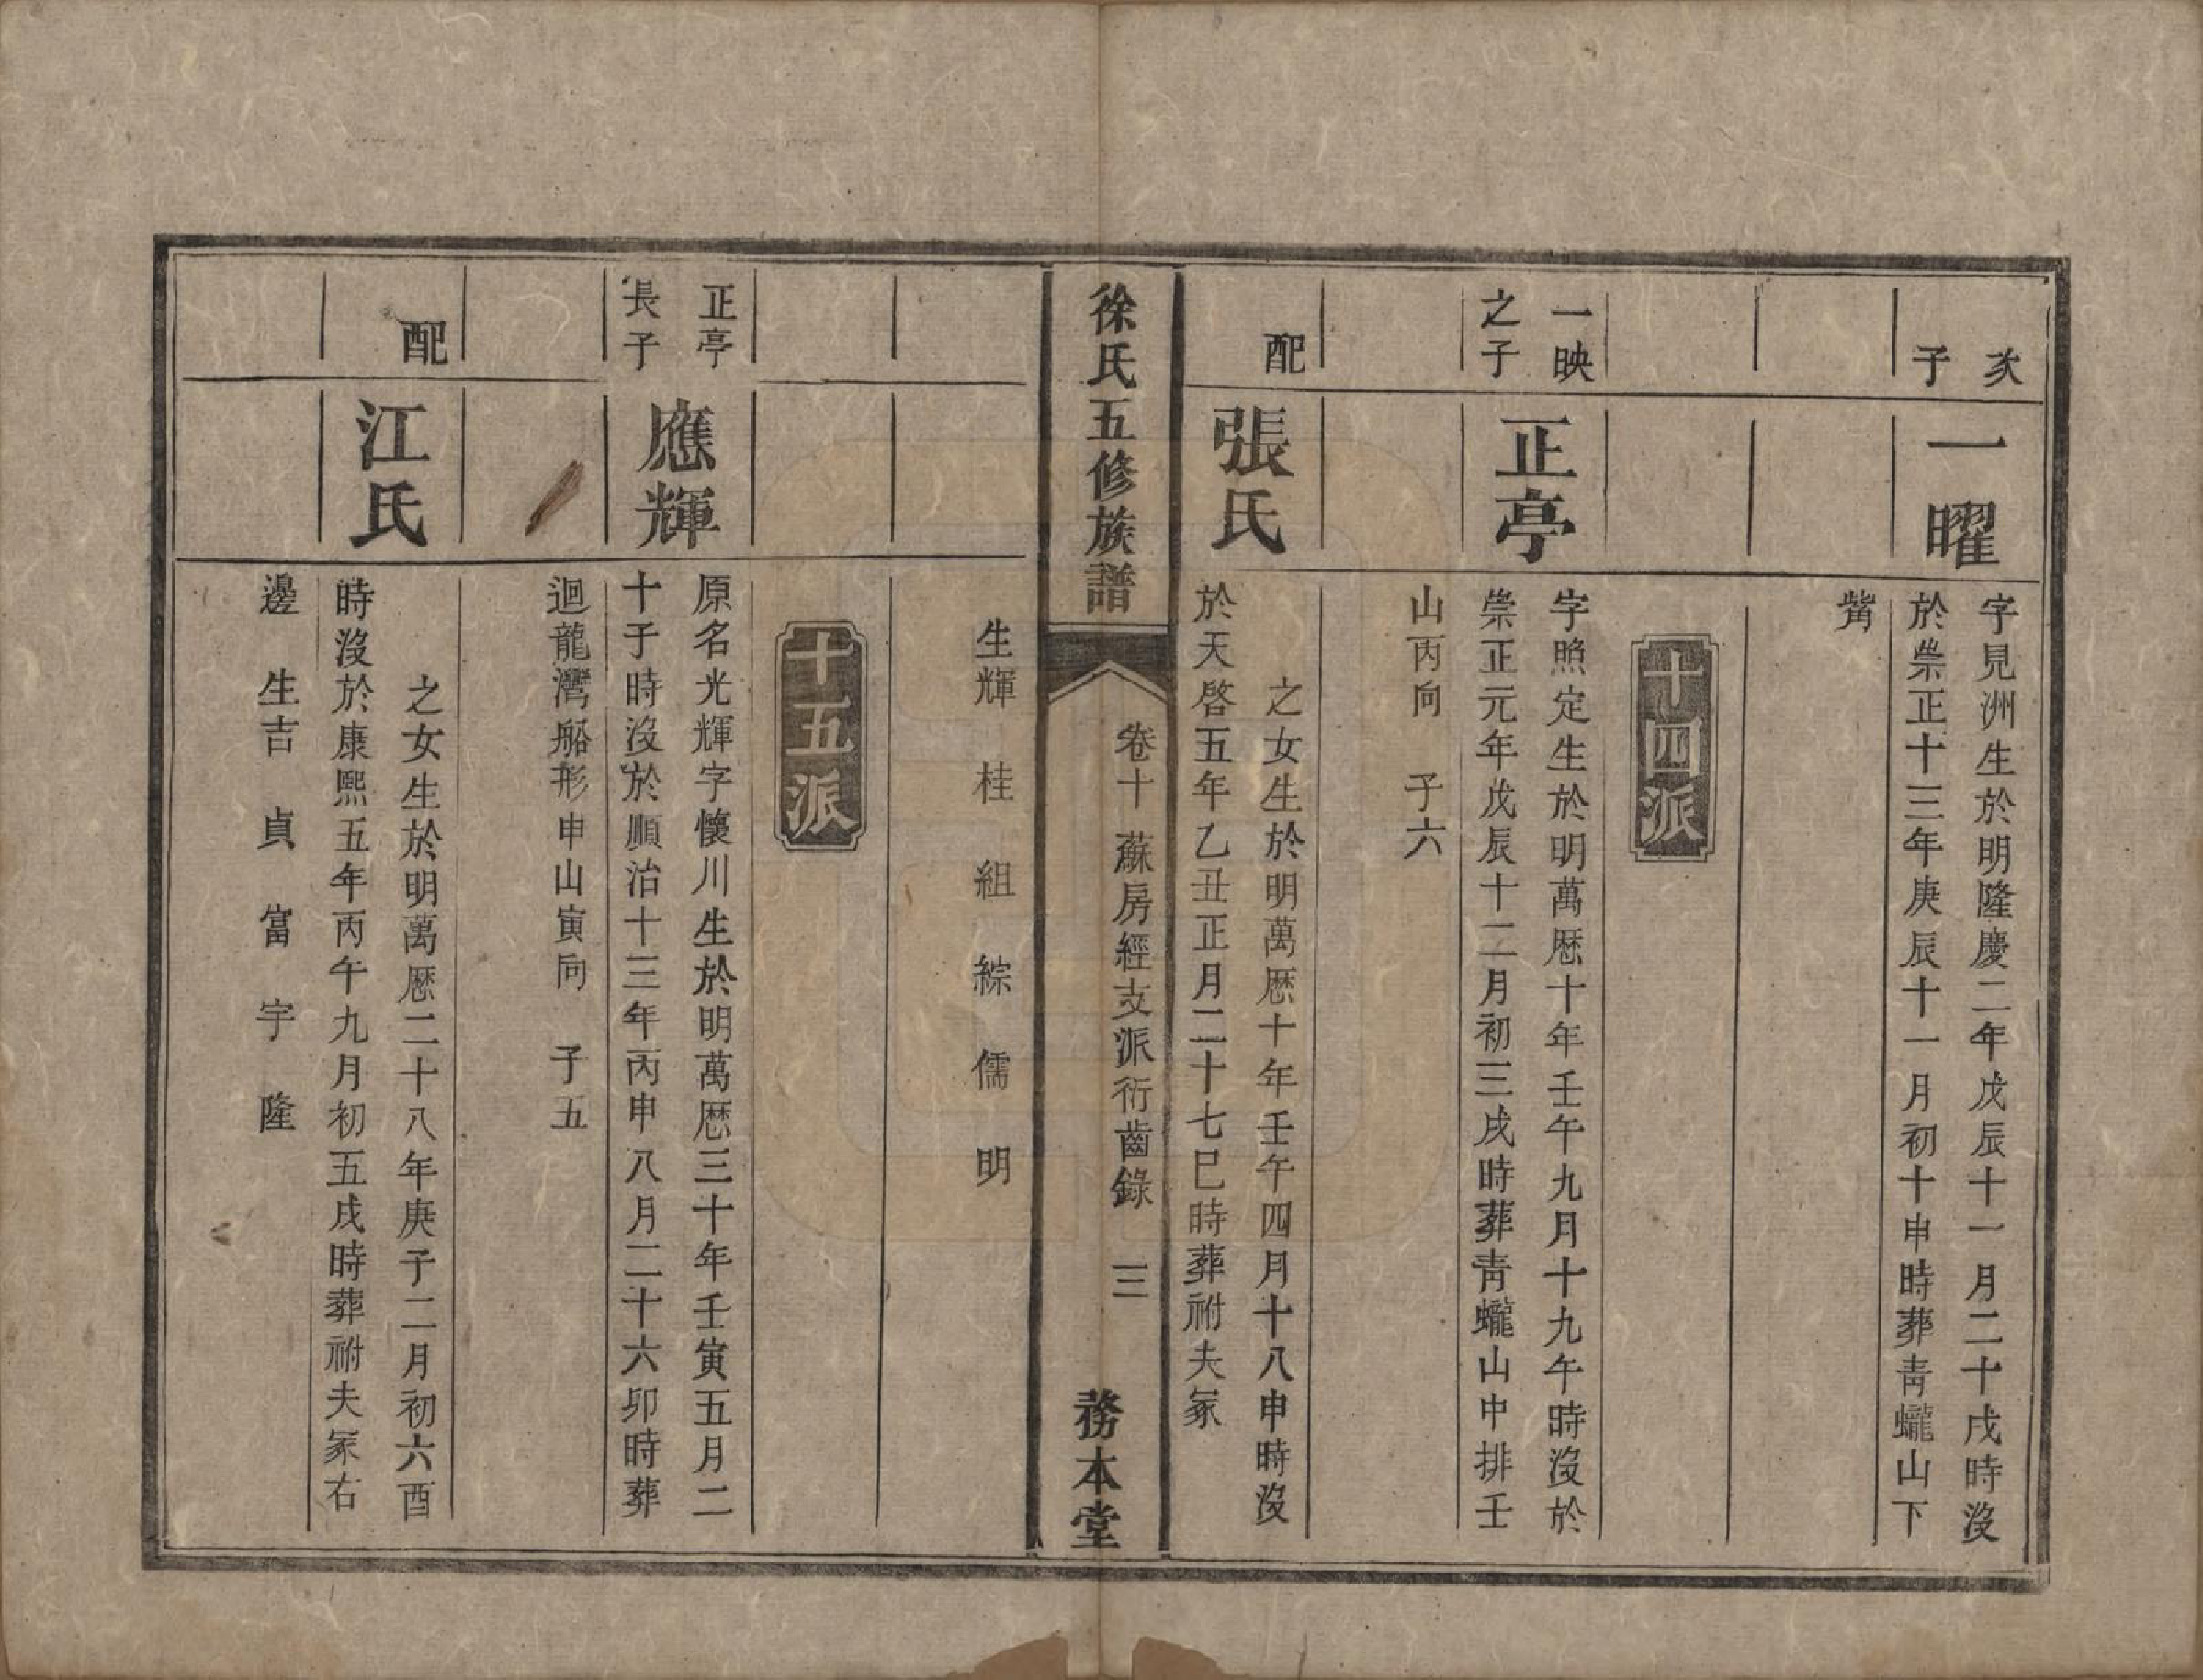 次
子
一曜
字見洲生於明隆慶二年戊辰十一月二十戌時沒
於崇正十三年庚辰十一月初十申時葬青蠬山下
嘴
十四派
一映
之子
正亭
字照定生於明萬厯十年壬午九月十九午時沒於
崇正元年戊辰十二月初三戌時葬青蠬山中排壬
山丙向 子六
配
張氏
之女生於明萬厯十年壬午四月十八申時沒
於天啓五年乙丑正月二十七巳時葬祔夫冢
徐氏五修族譜
卷十 蘇房經支派衍齒錄 三
務本堂
生輝 桂 組 綜 儒 明
十五派
正亭
長子
應輝
原名光輝字懷川生於明萬厯三十年壬寅五月二
十子時沒於順治十三年丙申八月二十六卯時葬
迴龍灣船形申山寅向 子五
配
江氏
之女生於明萬厯二十八年庚子二月初六酉
時沒於康熙五年丙午九月初五戌時葬祔夫冢右
邊 生吉 貞 富 宇 隆